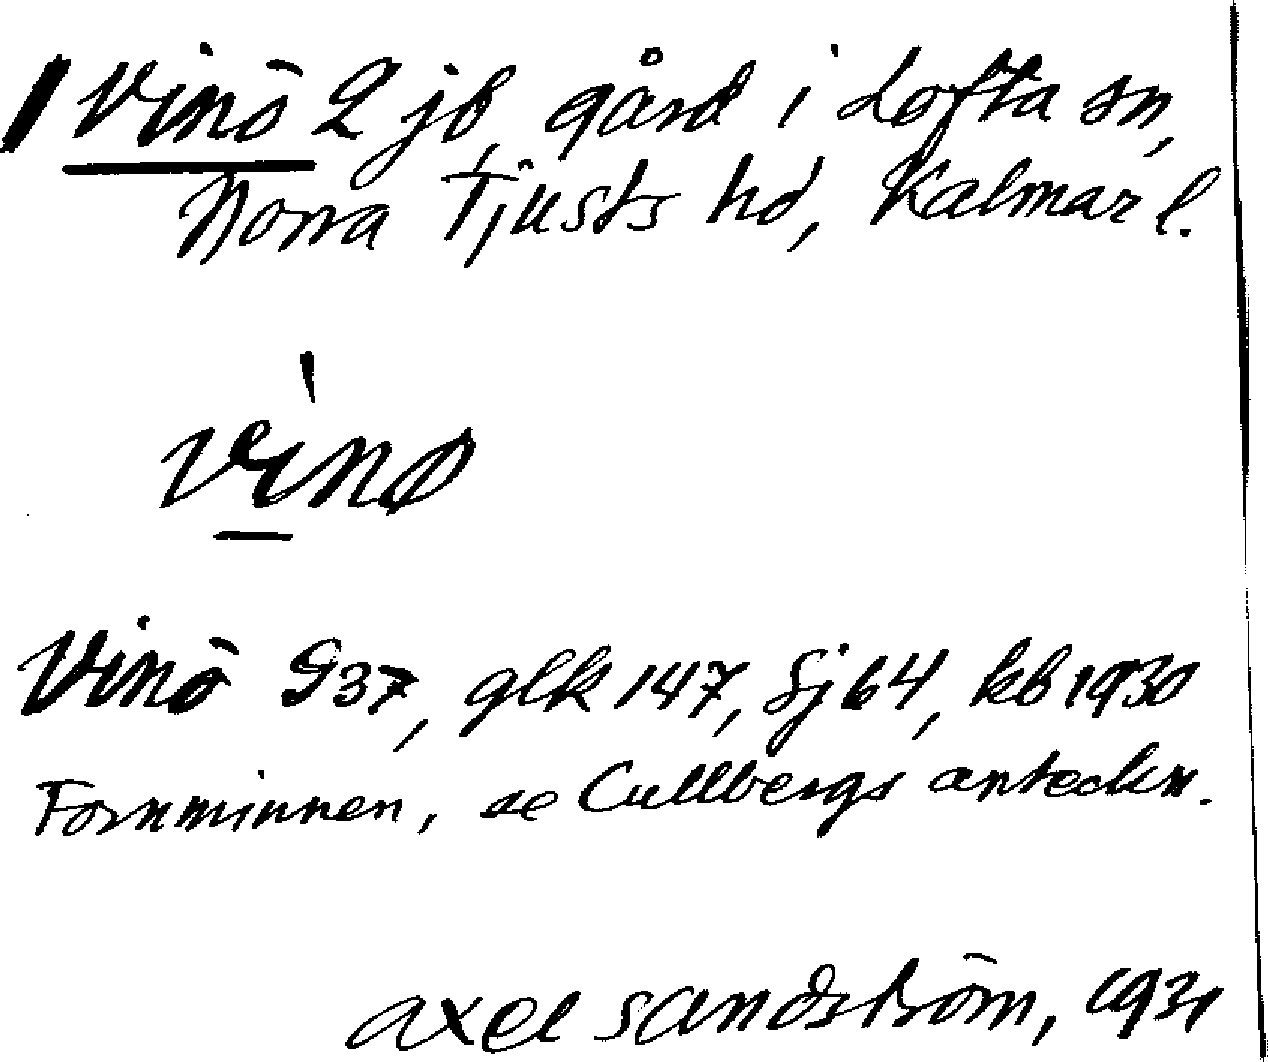 Vinö 2 jb, gård i Lofta sn,
Norra Tjusts hd, Kalmar l.
vi̠nø
Vinö G37, glk 147, Sj 64, kb 1930
Fornminnen, se Cullbergs anteckn.
Axel Sandström, 1931